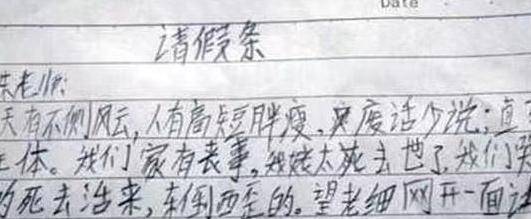 Date
请假条
老师:
天有不侧风云,人有高短胖瘦,废话少说;直
主体。我们家有丧事,姥太死去世了,我们
的死去活来,东倒西歪的。望老细网开一面